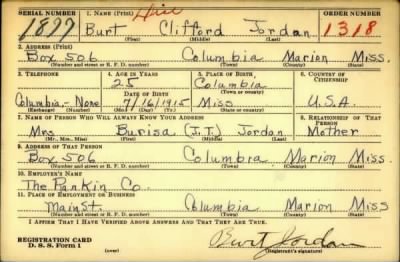 SERIAL NUMBER 1. NAME (Print) ORDER NUMBER
1899 Burt Clifford Jordan 1318
(First) (Middle) (Last)
2. ADDRESS (Print)
Box 506 Columbia Marion Miss.
(Number and street or R. F. D. number) (Town) (County) (State)
3. TELEPHONE 4. AGE IN YEARS 5. PLACE OF BIRTH 6. COUNTRY OF CITIZENSHIP
25 Columbia
DATE OF BIRTH (Town or county)
Columbia - None 7/16/1915 Miss U.S.A.
(Exchange) (Number) (Mo.) (Day) (Yr.) (State or country)
7. NAME OF PERSON WHO WILL ALWAYS KNOW YOUR ADDRESS 8. RELATIONSHIP OF THAT PERSON
Mrs Burisa (J.T.) Jordan Mother
(Mr., Mrs., Miss) (First) (Middle) (Last)
9. ADDRESS OF THAT PERSON
Box 506 Columbia Marion Miss.
(Number and street or R. F. D. number) (Town) (County) (State)
10. EMPLOYER'S NAME
The Rankin Co.
11. PLACE OF EMPLOYMENT OR BUSINESS
Main St. Columbia Marion Miss
(Number and street or R. F. D. number) (Town) (County) (State)
I AFFIRM THAT I HAVE VERIFIED ABOVE ANSWERS AND THAT THEY ARE TRUE.
REGISTRATION CARD
D. S. S. Form 1 (over) Burt Jordan
(Registrant's signature)